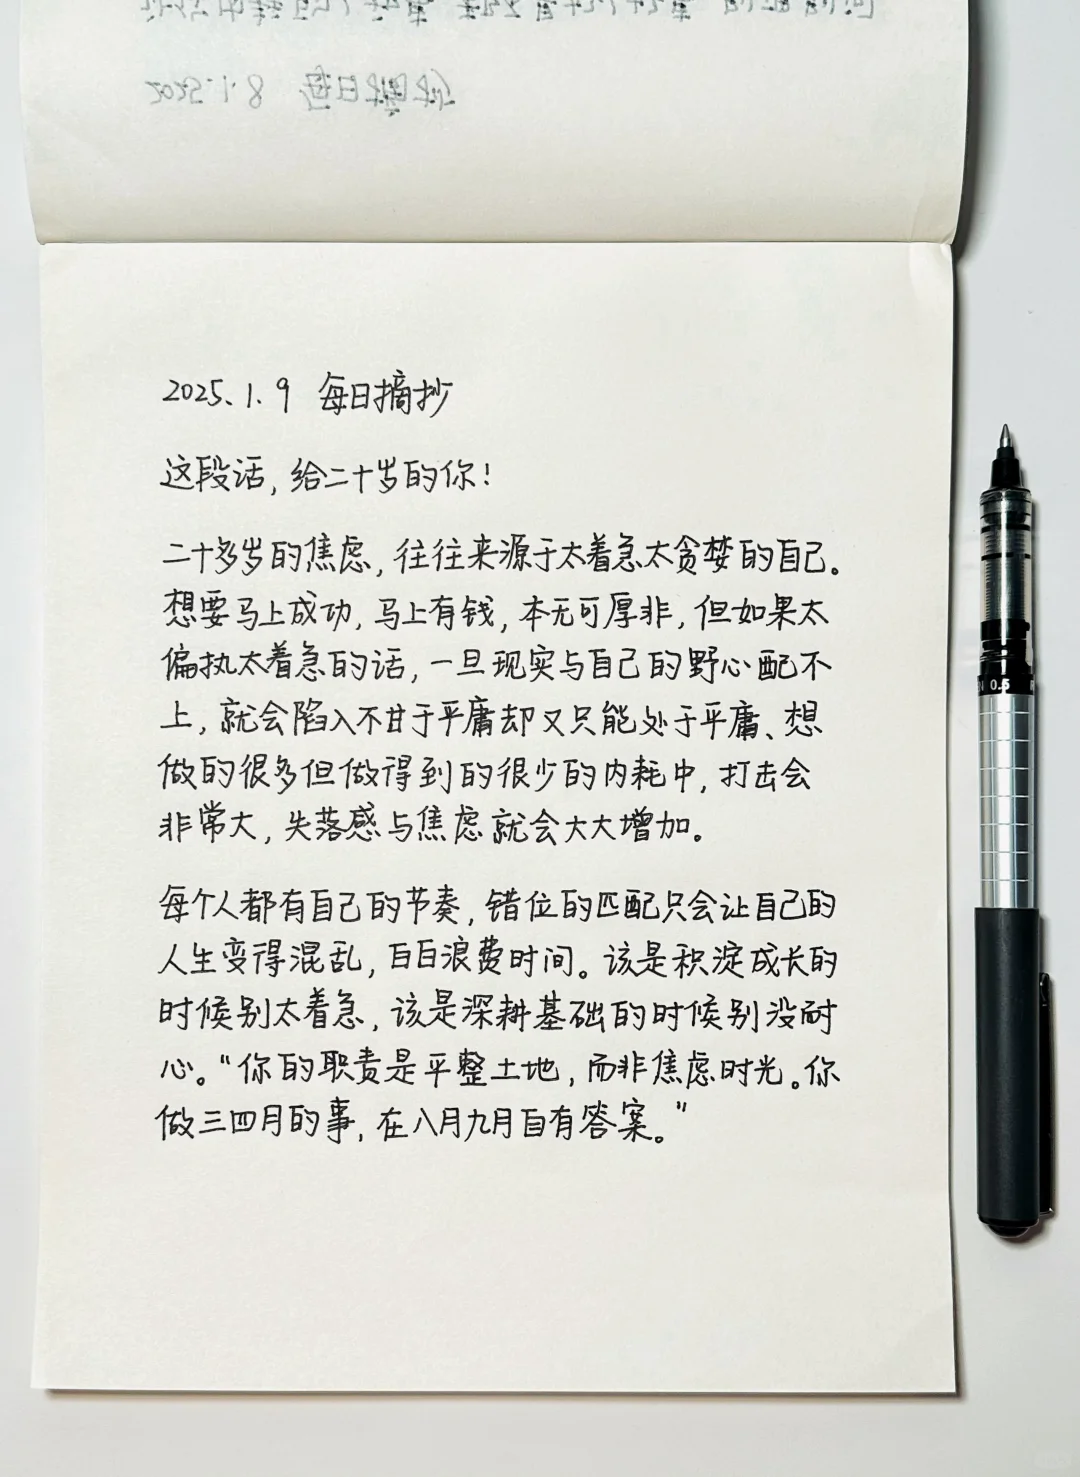 2025.1.8 每日摘抄
2025.1.9 每日摘抄
这段话,给二十岁的你!
二十多岁的焦虑,往往来源于太着急太贪婪的自己。
想要马上成功,马上有钱,本无可厚非,但如果太
偏执太着急的话,一旦现实与自己的野心配不
上,就会陷入不甘于平庸却又只能处于平庸、想
做的很多但做得到的很少的内耗中,打击会
非常大,失落感与焦虑就会大大增加。
每个人都有自己的节奏,错位的匹配只会让自己的
人生变得混乱,白白浪费时间。该是积淀成长的
时候别太着急,该是深耕基础的时候别没耐
心。“你的职责是平整土地,而非焦虑时光。你
做三四月的事,在八月九月自有答案。”
0.5